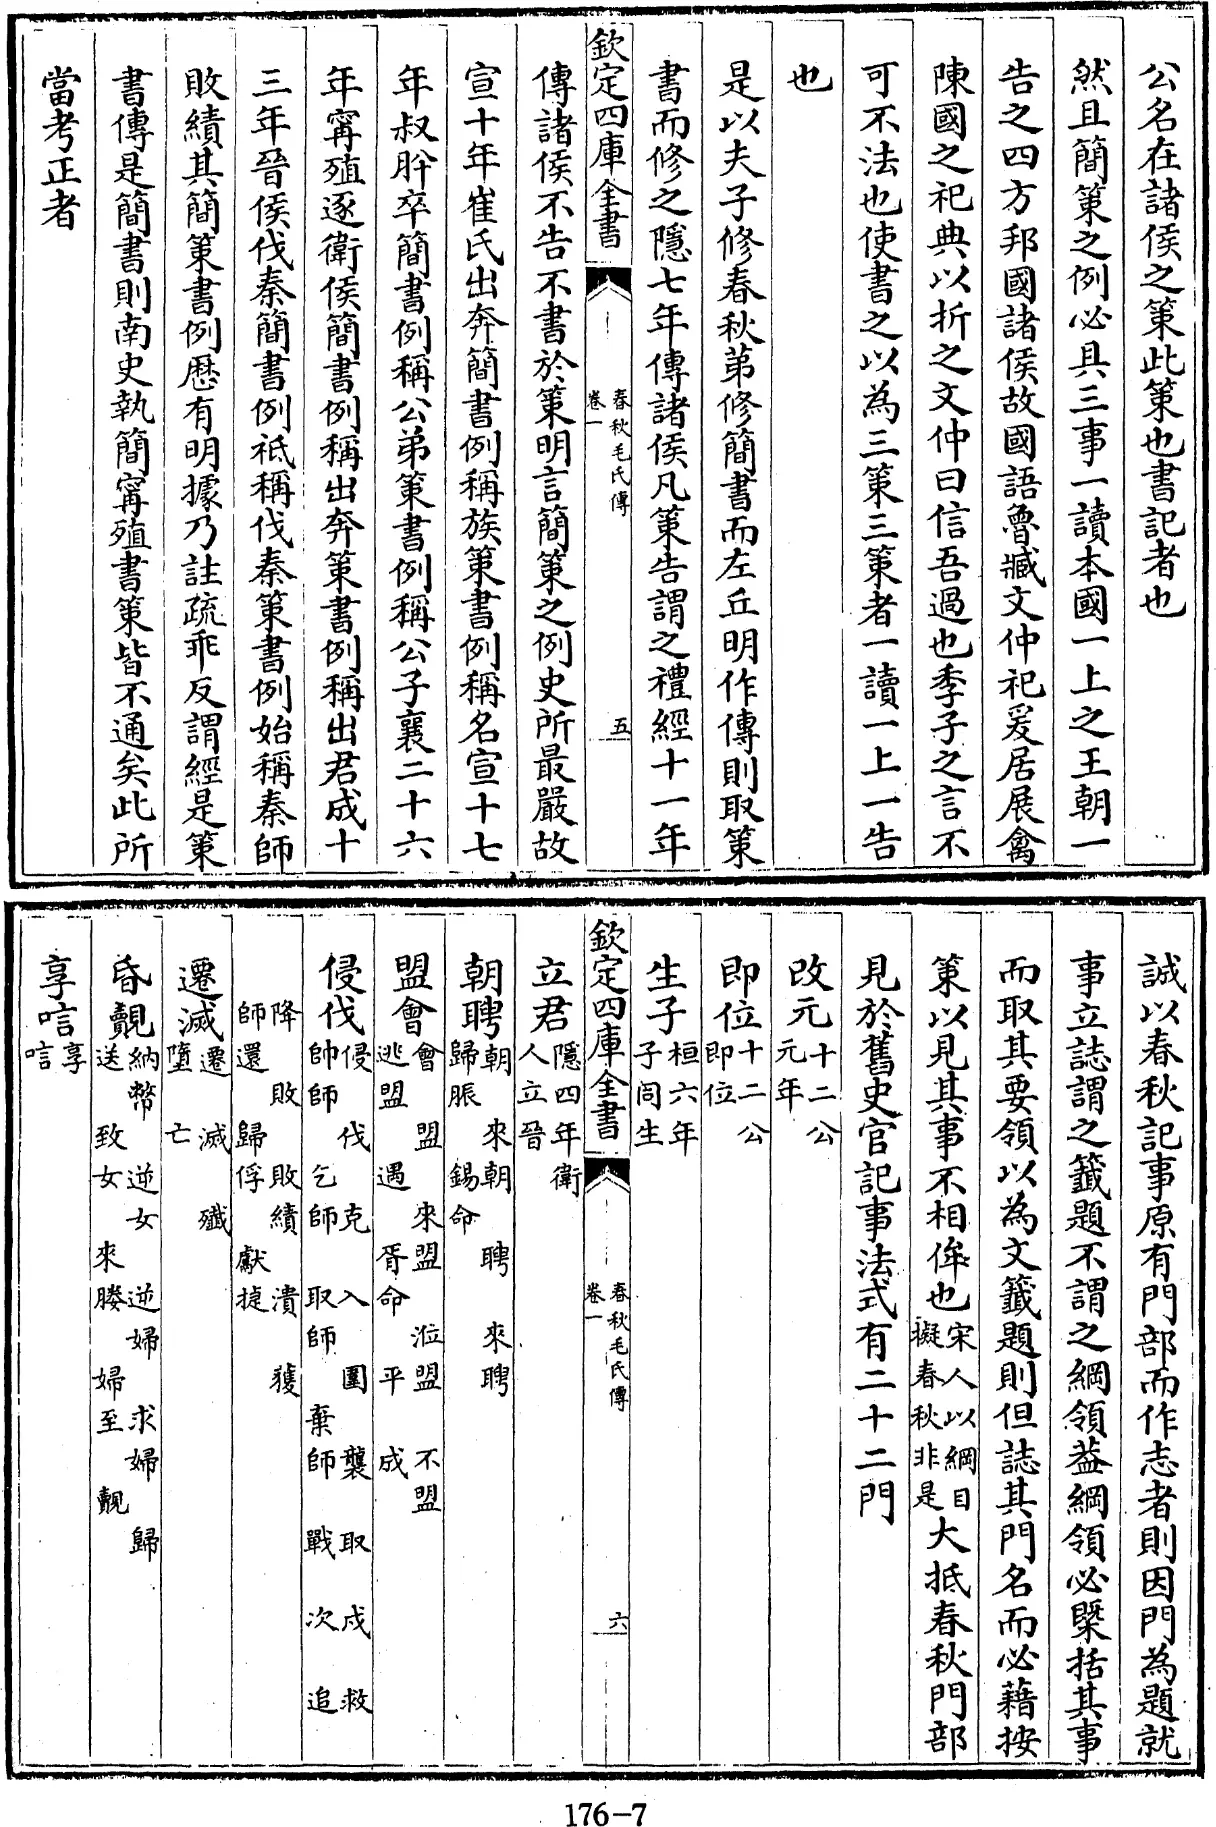 公名在諸侯之策此策也書記者也
然且簡策之例必具三事一讀本國一上之王朝一
告之四方邦國諸侯故國語魯臧文仲祀爰居展禽
陳國之祀典以折之文仲曰信吾過也季子之言不
可不法也使書之以為三策三策者一讀一上一告
也
是以夫子修春秋第修簡書而左丘明作傳則取策
書而修之隱七年傳諸侯凡策告謂之禮經十一年
欽定四庫全書
春秋毛氏傳
卷一
五
傳諸侯不告不書於策明言簡策之例史所最嚴故
宣十年崔氏出奔簡書例稱族策書例稱名宣十七
年叔肸卒簡書例稱公弟策書例稱公子襄二十六
年甯殖逐衛侯簡書例稱出奔策書例稱出君成十
三年晉侯伐秦簡書例祇稱伐秦策書例始稱秦師
敗績其簡策書例歷有明據乃註疏乖反謂經是策
書傳是簡書則南史執簡甯殖書策皆不通矣此所
當考正者
誠以春秋記事原有門部而作志者則因門為題就
事立誌謂之籤題不謂之綱領葢綱領必檃括其事
而取其要領以為文籤題則但誌其門名而必藉按
策以見其事不相侔也宋人以綱目
擬春秋非是大抵春秋門部
見於舊史官記事法式有二十二門
改元十二公
元年
即位十二公
即位
生子桓六年
子同生
欽定四庫全書
春秋毛氏傳
卷一
六
立君隱四年衛
人立晉
朝聘朝 來朝 聘 來聘
歸脤 錫命
盟會會 盟 來盟 涖盟 不盟
逃盟 遇 胥命 平 成
侵伐侵 伐 克 入 圍 襲 取 戍 救
帥師 乞師 取師 棄師 戰 次 追
降 敗 敗績 潰 獲
師還 歸俘 獻捷
遷滅遷 滅 殲
墮 亡
昏覿納幣 逆女 逆婦 求婦 歸
送 致女 來媵 婦至 覿
享唁享
唁
176-7